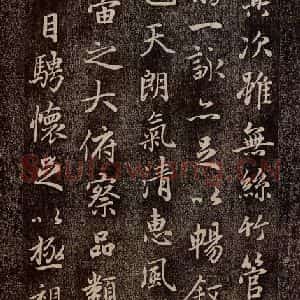 其次雖無絲竹管
觴一詠亦足以暢敘
也天朗氣清惠風
宙之大俯察品類
目騁懷足以極視